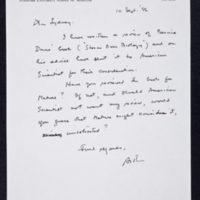 10 Sept. 86
Dear Sydney,
I have written a review of Bernie
Davis' book ('Storm Over Biology') and on
his advice have sent it to American
Scientist for their consideration.
Have you reviewed the book for
Nature? If not, and should American
Scientist not want my review, would
you guess that Nature might consider it,
unsolicited?
Yours as ever,